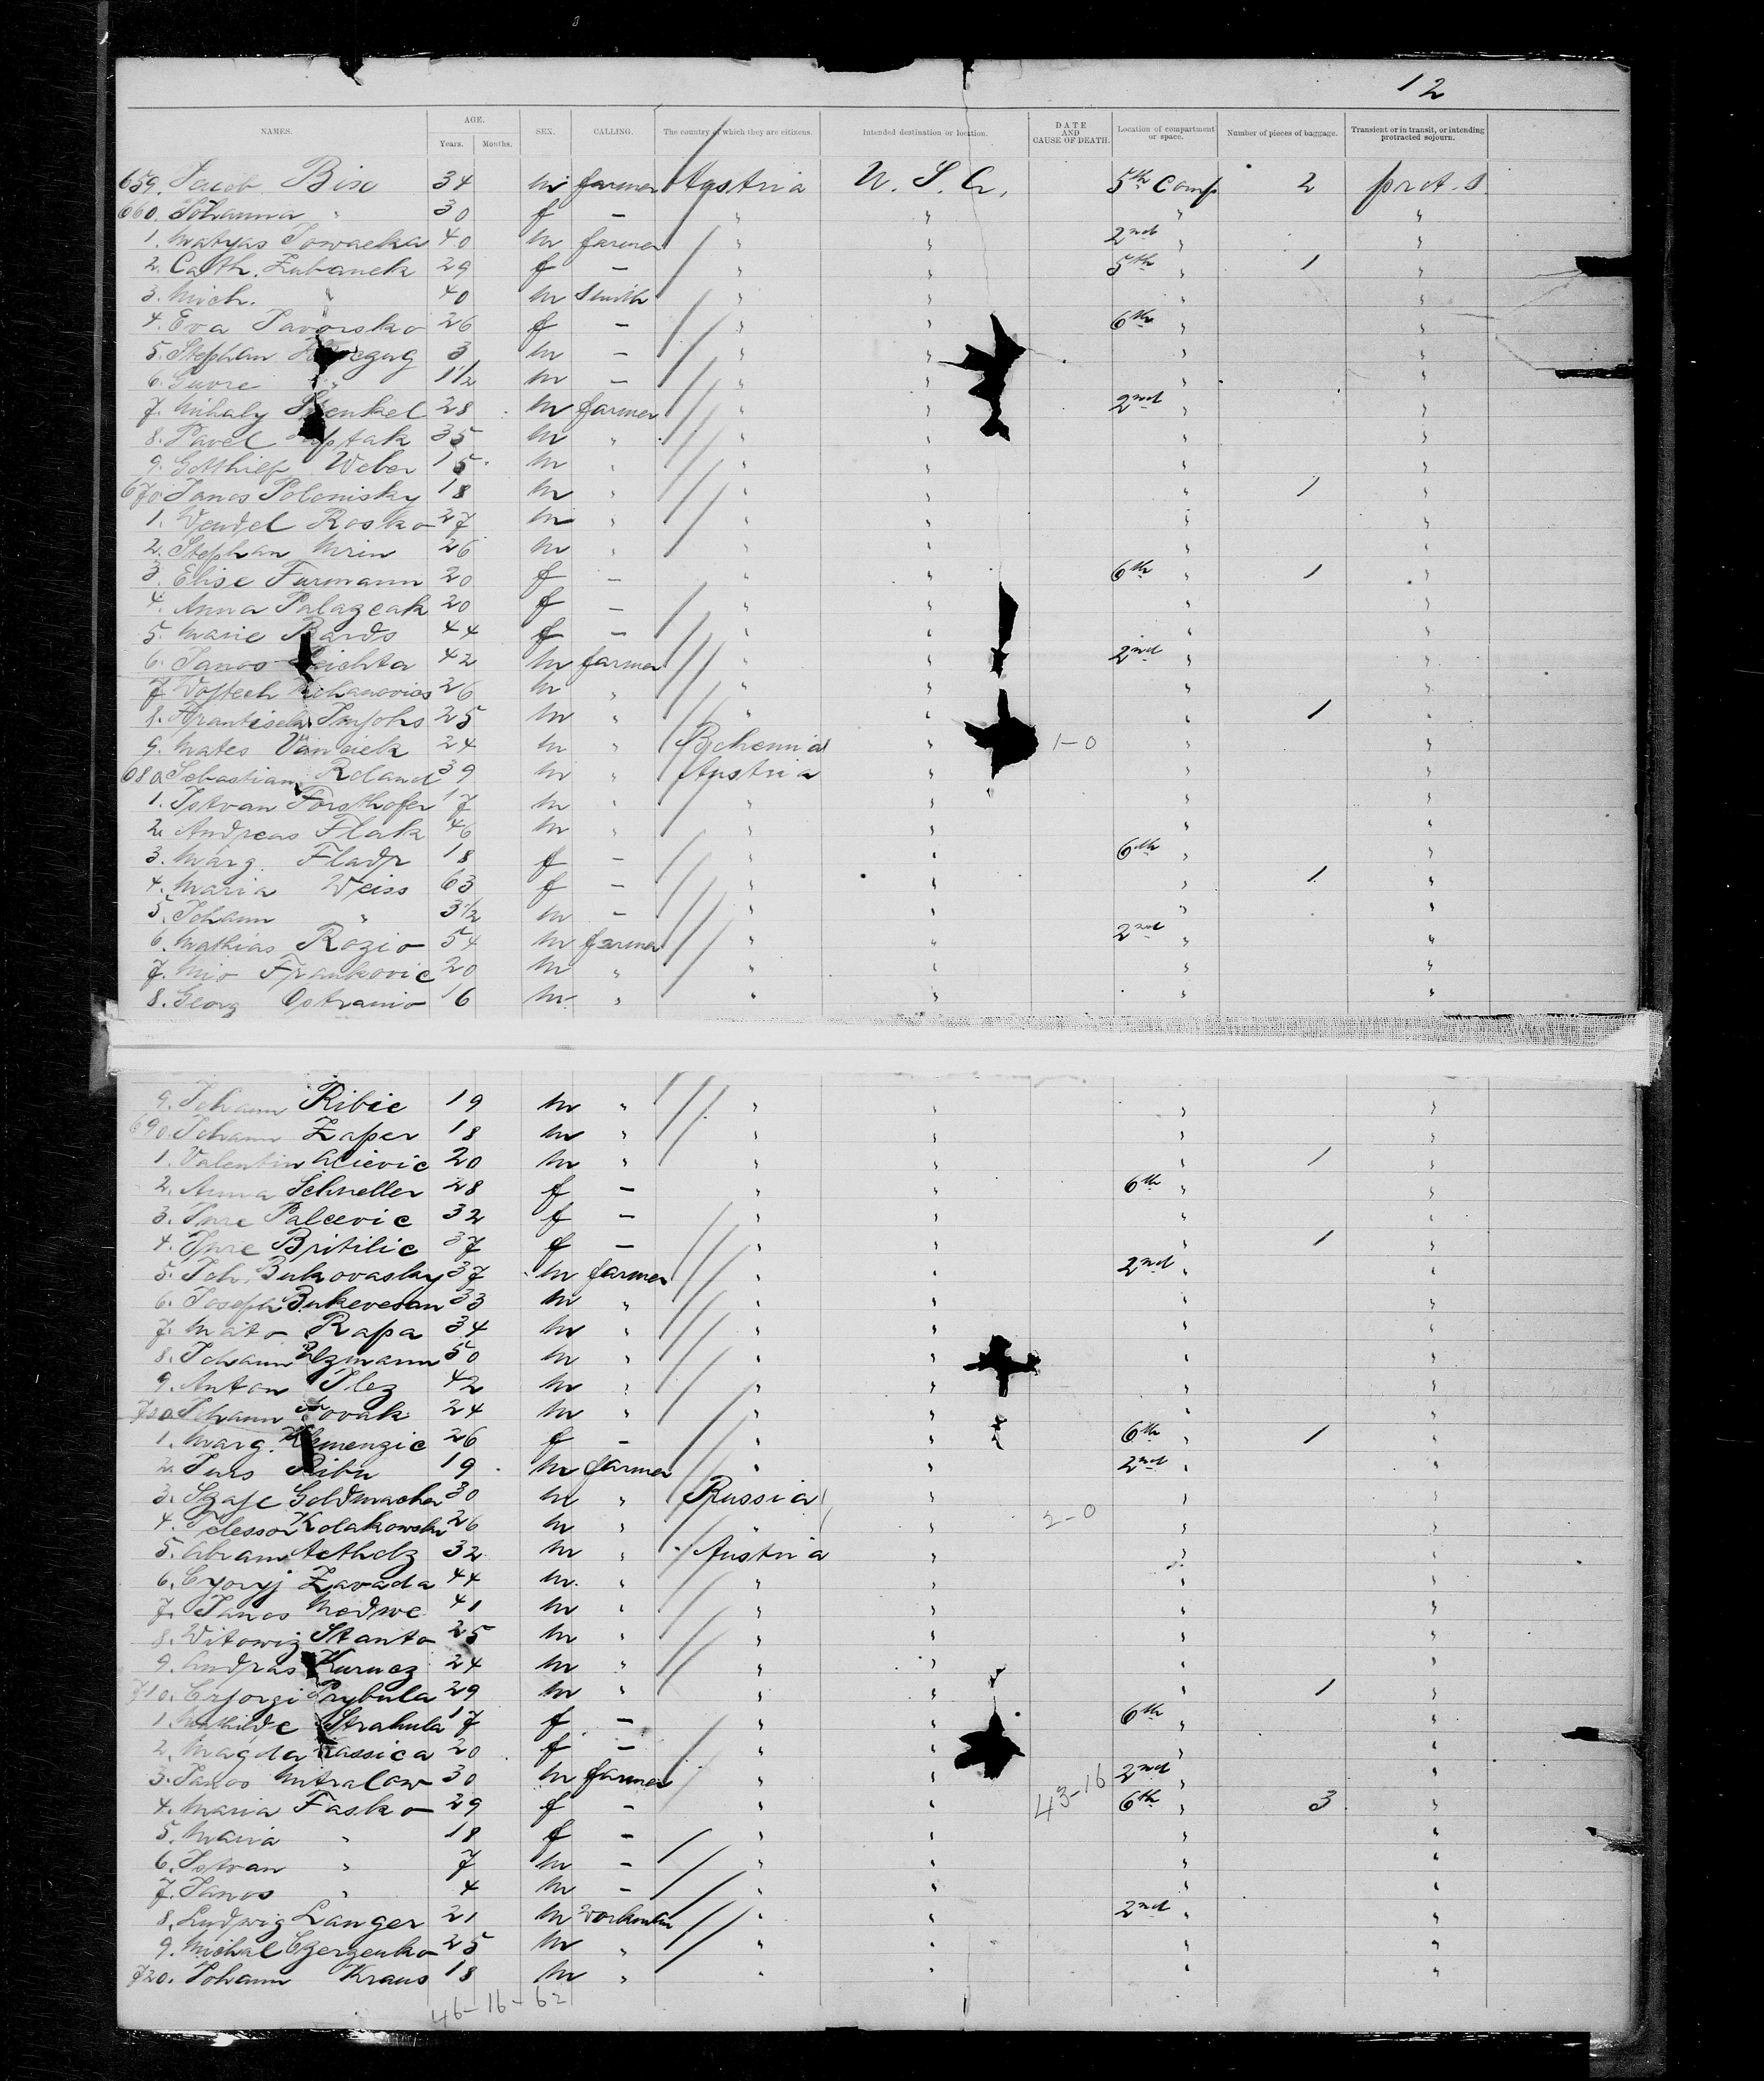 12
NAMES. AGE. Years. Months. SEX. CALLING. The country of which they are citizens. Intended destination or location. DATE AND CAUSE OF DEATH. Location of compartment or space. Number of pieces of baggage. Transient or in transit, or intending protracted sojourn.
659. Jacob Bise 34 m farmer Austria U. S. A. 5th Comp 2 prot. s.
660. Johanna " 30 f — " " " "
1. Matyas 40 m farmer " " 2nd " "
2. Cath. Zubanek 29 f — " " 5th " 1 "
3. Mich. " 40 m Smith " " " "
4. Eva Javorsko 26 f — " " 6th " "
5. Stephan 3 m — " " " "
6. " 1 1/2 m — " " " "
7. Mihaly 28 m farmer " " 2nd " "
8. Pavel 35 m " " " " "
9. Gotthief Weber 15 m " " " " "
670. Janos Polonisky 18 m " " " " 1 "
1. Wendel Rosko 27 m " " " " "
2. Stephan Mrin 26 m " " " " "
3. Elise Furmann 20 f — " " 6th " 1 "
4. Anna Palazcak 20 f — " " " "
5. Marie Bards 44 f — " " " "
6. Janos 42 m farmer " " 2nd " "
7. Wojtech 26 m " " " " "
8. Frantisek 25 m " " " " 1 "
9. Mates Vanicek 24 m " Bohemia " 1-0 " "
680. Sebastian Roland 39 m " Austria " " "
1. Istvan Forsthofer 17 m " " " " "
2. Andreas Flak 46 m " " " " "
3. Marg. Fladr 18 f — " " 6th " "
4. Maria Weiss 63 f — " " " 1 "
5. Johann " 3 1/2 m — " " " "
6. Mathias Rozio 54 m farmer " " 2nd " "
7. Mio Frankovic 20 m " " " " "
8. Georg Ostranio 16 m " " " " "
9. Johann Ribic 19 m " " " " "
690. Johann Zaper 18 m " " " " "
1. Valentin 20 m " " " " 1 "
2. Anna Schneller 28 f — " " 6th " "
3. Jure Palcevic 32 f — " " " "
4. Jure Britilic 37 f — " " " 1 "
5. Joh. Bukovasky 37 m farmer " " 2nd " "
6. Josepa Bukevesan 33 m " " " " "
7. Mato Rapa 34 m " " " " "
8. Johann 50 m " " " " "
9. Anton Ilez 42 m " " " " "
700. Johann Novak 24 m " " " " "
1. Marg. Klemenzic 26 f — " " 6th " 1 "
2. Jurs Ribu 19 m farmer " " 2nd " "
3. Goldmacher 30 m " Russia " " "
4. Kolakowski 26 m " " " 2-0 " "
5. Abram 32 m " Austria " " "
6. Zavada 44 m " " " " "
7. Janos Medwe 41 m " " " " "
8. Witowiz Stanto 25 m " " " " "
9. Andras Kurucz 24 m " " " " "
710. Prybula 29 m " " " " 1 "
1. Mathilde Strahula 17 f — " " 6th " "
2. Magda Kassica 20 f — " " " "
3. Janos Mitralow 30 m farmer " " 2nd " "
4. Maria Fasko 29 f — " " 43-16 6th " 3 "
5. Maria " 18 f — " " " "
6. Istvan " 7 m — " " " "
7. Janos " 4 m — " " " "
8. Ludwig Langer 21 m " " 2nd " "
9. Michal Czerzenko 25 m " " " " "
720. Johann Kraus 18 m " " " " "
46-16-62